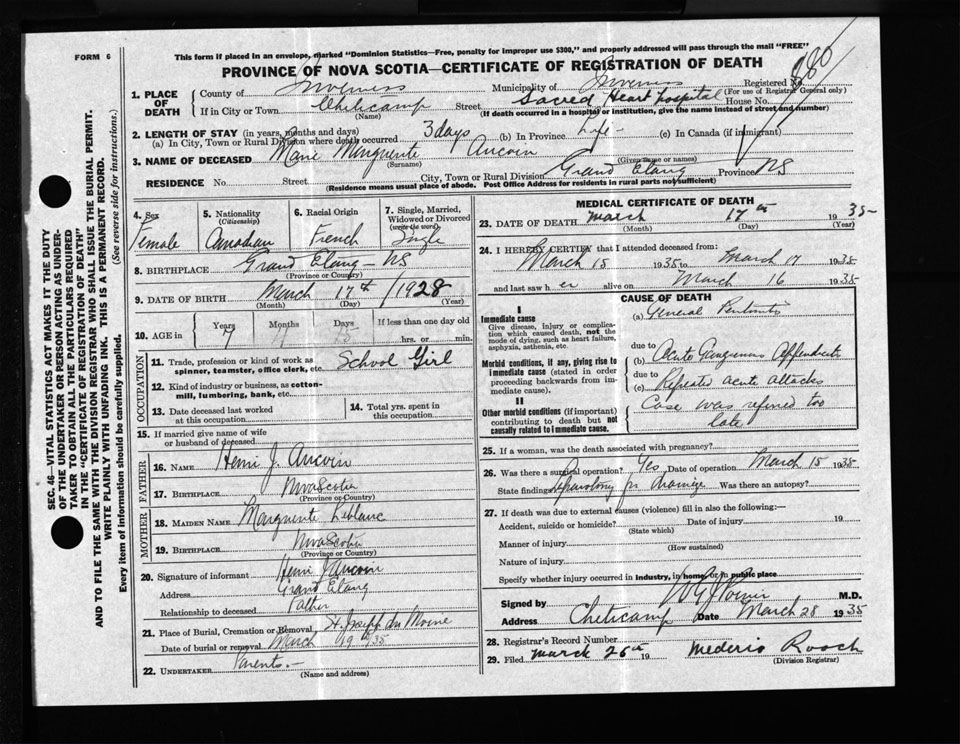 FORM 6
This form if placed in an envelope, marked "Dominion Statistics—Free, penalty for improper use $300," and properly addressed will pass through the mail "FREE"
PROVINCE OF NOVA SCOTIA—CERTIFICATE OF REGISTRATION OF DEATH
1. PLACE OF DEATH
County of Inverness Municipality of Inverness Registered No.
(For use of Registrar General only)
If in City or Town Cheticamp Street Sacred Heart hospital House No.
(Name) (If death occurred in a hospital or institution, give the name instead of street and number)
2. LENGTH OF STAY (in years, months and days)
(a) In City, Town or Rural Division where death occurred 3 days (b) In Province Life- (c) In Canada (if immigrant)
3. NAME OF DECEASED Marie Marguerite Aucoin
(Surname) (Given name or names)
RESIDENCE No. Street City, Town or Rural Division Grand Etang Province NS
(Residence means usual place of abode. Post Office Address for residents in rural parts not sufficient)
4. Sex
Female
5. Nationality
(Citizenship)
Canadian
6. Racial Origin
French
7. Single, Married, Widowed or Divorced
(write the word)
Single
8. BIRTHPLACE Grand Etang - NS
(Province or Country)
9. DATE OF BIRTH March 17th 1928
(Month) (Day) (Year)
10. AGE in Years Months Days If less than one day old
7 hrs. or min.
OCCUPATION
11. Trade, profession or kind of work as spinner, teamster, office clerk, etc. School Girl
12. Kind of industry or business, as cotton-mill, lumbering, bank, etc.
13. Date deceased last worked at this occupation
14. Total yrs. spent in this occupation
15. If married give name of wife or husband of deceased
FATHER
16. NAME Henri J. Aucoin
17. BIRTHPLACE Nova Scotia
(Province or Country)
MOTHER
18. MAIDEN NAME Marguerite Leblanc
19. BIRTHPLACE Nova Scotia
(Province or Country)
20. Signature of informant Henri J Aucoin
Address Grand Etang
Relationship to deceased Father
21. Place of Burial, Cremation or Removal St. Joseph du Moine
Date of burial or removal March 19th 1935
22. UNDERTAKER Parents.-
(Name and address)
MEDICAL CERTIFICATE OF DEATH
23. DATE OF DEATH March 17th 1935
(Month) (Day) (Year)
24. I HEREBY CERTIFY that I attended deceased from:
March 15 1935 to March 17 1935
and last saw her alive on March 16 1935
CAUSE OF DEATH
I
Immediate cause
Give disease, injury or complication which caused death, not the mode of dying, such as heart failure, asphyxia, asthenia, etc.
(a) General Peritonitis
Morbid conditions, if any, giving rise to immediate cause (stated in order proceeding backwards from immediate cause).
due to
(b) Acute Gangrenous Appendicitis
due to
(c) Repeated acute attacks
II
Other morbid conditions (if important) contributing to death but not causally related to immediate cause.
Case was refined too
late
25. If a woman, was the death associated with pregnancy?
26. Was there a surgical operation? Yes Date of operation March 15 1935
State findings Laparotomy for drainage Was there an autopsy?
27. If death was due to external causes (violence) fill in also the following:—
Accident, suicide or homicide? Date of injury 19
(State which)
Manner of injury
(How sustained)
Nature of injury
Specify whether injury occurred in industry, in home, or in public place
Signed by M.D.
Address Cheticamp Date March 28 1935
28. Registrar's Record Number
29. Filed March 26th 19 Mederic Roach
(Division Registrar)
SEC. 46—VITAL STATISTICS ACT MAKES IT THE DUTY
OF THE UNDERTAKER OR PERSON ACTING AS UNDERTAKER TO OBTAIN ALL THE PARTICULARS REQUIRED
IN THE "CERTIFICATE OF REGISTRATION OF DEATH"
AND TO FILE THE SAME WITH THE DIVISION REGISTRAR WHO SHALL ISSUE THE BURIAL PERMIT.
WRITE PLAINLY WITH UNFADING INK. THIS IS A PERMANENT RECORD.
Every item of information should be carefully supplied. (See reverse side for instructions.)